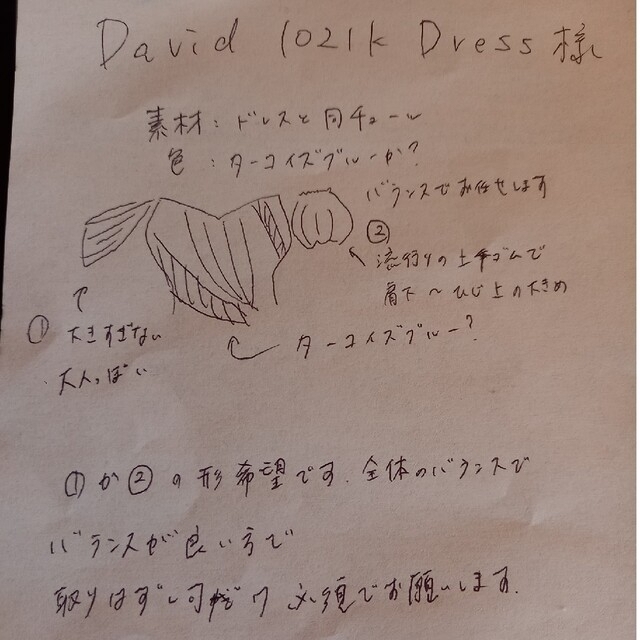 David 1021k Dress 様
素材：ドレスと同チュール
色：ターコイズブルーか？
バランスでお任せします
②
流行りの上下ゴムで
肩下～ひじ上の大きめ
①大きすぎない
大人っぽい
ターコイズブルー？
①か②の形希望です.全体のバランスで
バランスが良い方で
取りはずし可だけ必須でお願いします.